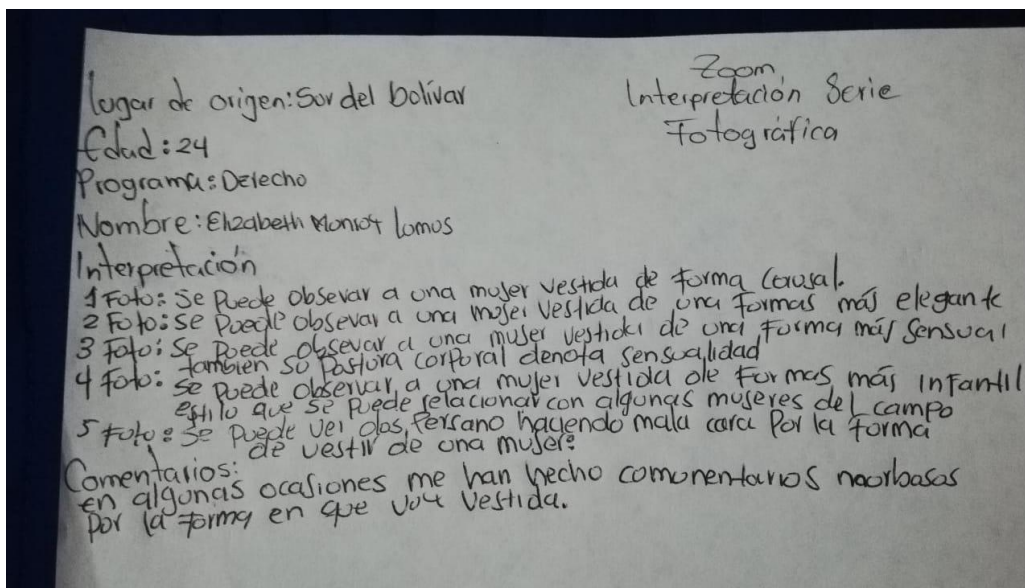 Zoom
Interpretación Serie
Fotográfica
lugar de origen: Sur del bolívar
Edad: 24
Programa: Derecho
Nombre: Elizabeth lomus
Interpretación
1 Foto: Se Puede obsevar a una mujer vestida de forma Causal.
2 Foto: Se Puede obsevar a una mujer vestida de una formas más elegante
3 Foto: Se Puede obsevar a una mujer vestida de una forma más Sensual
tambien su Postura corporal denota sensualidad
4 Foto: se puede observar a una mujer vestida de Formas más infantil
estilo que se puede relacionar con algunas mujeres del campo
5 Foto: Se puede ver dos, haciendo mala cara Por la forma
de vestir de una mujer.
Comentarios:
en algunas ocasiones me han hecho
Por la forma en que voy vestida.